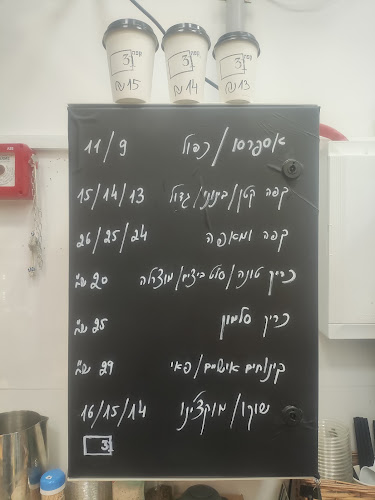 קפה 3 15 ₪
קפה 3 14 ₪
קפה 3 13 ₪
אספרסו / כפול 11/9
קפה קטן/בינוני/גדול 15/14/13
קפה ומאפה 26/25/24
כריך טונה/סלט ביצים/מוצרלה 20 ש"ח
כריך סלמון 25 ש"ח
קינוחים אישיים/פאי 29 ש"ח
שוקו/מוקצ'ינו 16/15/14
3